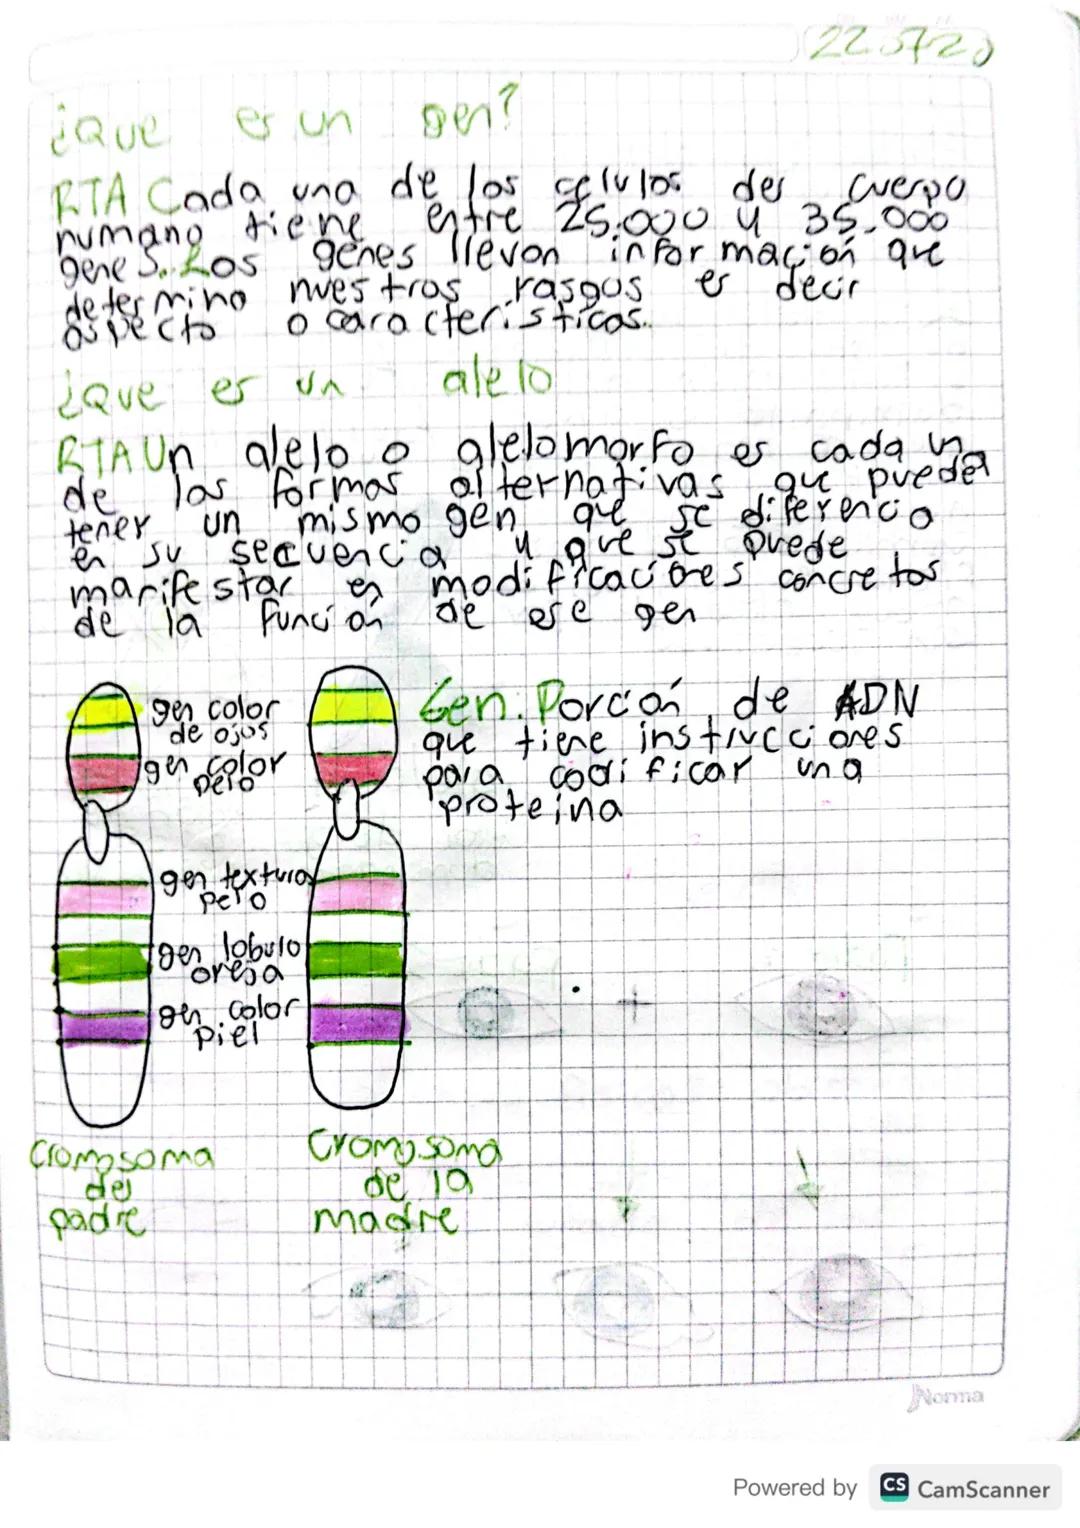 ¿Que es un gen?
RTA Cada una de los celulos del cuerpo
humano tiene entre 25.000 y 35.000
genes. Los genes llevon información que
determino nuestros rasgos es decir
aspecto o caracteristicas.
¿Que es un alelo
RTA Un alelo o alelomorfo es cada un
de las formas alternativas que puede
tener un mismo gen que se diferencia
en su secuencia y que se puede
manifestar en modificaciones concretas
de la función de ese gen
Gen. Porción de ADN
que tiene instrucciones
para codificar una
proteina
gen color
de ojos
gen color
pelo
gen textura
pelo
gen lobulo
oreja
gen color
piel
+
Cromosoma
del
padre
Cromosoma
de la
madre
Norma
Powered by CS CamScanner